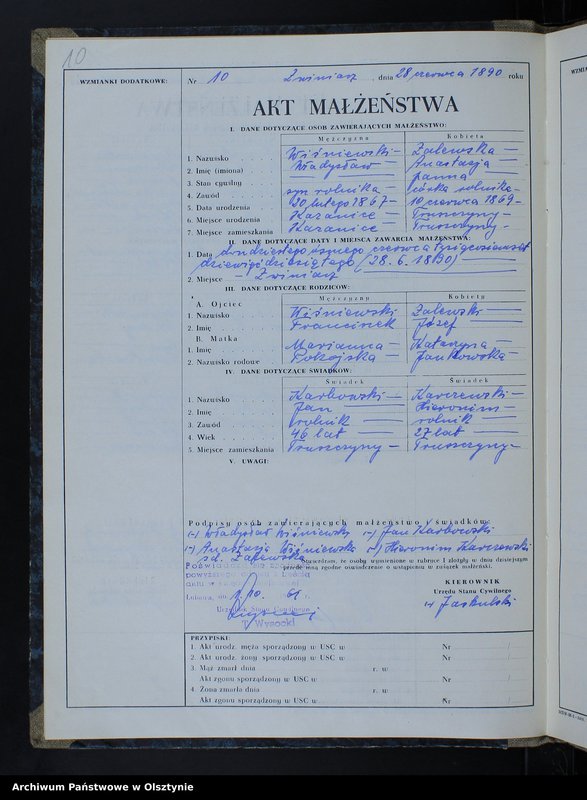 10
WZMIANKI DODATKOWE:
Nr 10 Zwiniarz, dnia 28 czerwca 1890 roku
AKT MAŁŻEŃSTWA
I. DANE DOTYCZĄCE OSÓB ZAWIERAJĄCYCH MAŁŻEŃSTWO:
Mężczyzna Kobieta
1. Nazwisko Wiśniewski Zalewska
2. Imię (imiona) Władysław Anastazja
3. Stan cywilny panna
4. Zawód syn rolnika córka rolnika
5. Data urodzenia 20 lutego 1867 10 czerwca 1869
6. Miejsce urodzenia Kazanice Truszczyny
7. Miejsce zamieszkania Kazanice Truszczyny
II. DANE DOTYCZĄCE DATY I MIEJSCA ZAWARCIA MAŁŻEŃSTWA:
1. Data dwudziestego ósmego czerwca tysiąc osiemset
dziewięćdziesiątego (28.6.1890)
2. Miejsce - Zwiniarz
III. DANE DOTYCZĄCE RODZICÓW:
Mężczyzny Kobiety
A. Ojciec
1. Nazwisko Wiśniewski Zalewski
2. Imię Franciszek Józef
B. Matka
1. Imię Marianna Katarzyna
2. Nazwisko rodowe Pokojska Jankowska
IV. DANE DOTYCZĄCE ŚWIADKÓW:
Świadek Świadek
1. Nazwisko Karbowski Karczewski
2. Imię Jan Hieronim
3. Zawód rolnik rolnik
4. Wiek 46 lat 27 lat
5. Miejsce zamieszkania Truszczyny Truszczyny
V. UWAGI:
Podpisy osób zawierających małżeństwo i świadków:
(-) Władysław Wiśniewski (-) Jan Karbowski
(-) Anastazja Wiśniewska (-) Hieronim Karczewski
zd. Zalewska
Potwierdzam, że osoby wymienione w rubryce I złożyły w dniu dzisiejszym
przede mną zgodne oświadczenie o wstąpieniu w związek małżeński.
Poświadcza się
KIEROWNIK
Urzędu Stanu Cywilnego
(-) Jaskulski
Lubawa, dn. 1.10. 61 r.
Urzędnik Stanu Cywilnego
T. Wysocki
PRZYPISKI:
1. Akt urodz. męża sporządzony w USC w Nr /
2. Akt urodz. żony sporządzony w USC w Nr /
3. Mąż zmarł dnia r. w
Akt zgonu sporządzony w USC w Nr /
4. Żona zmarła dnia r. w
Akt zgonu sporządzony w USC w Nr /
Archiwum Państwowe w Olsztynie